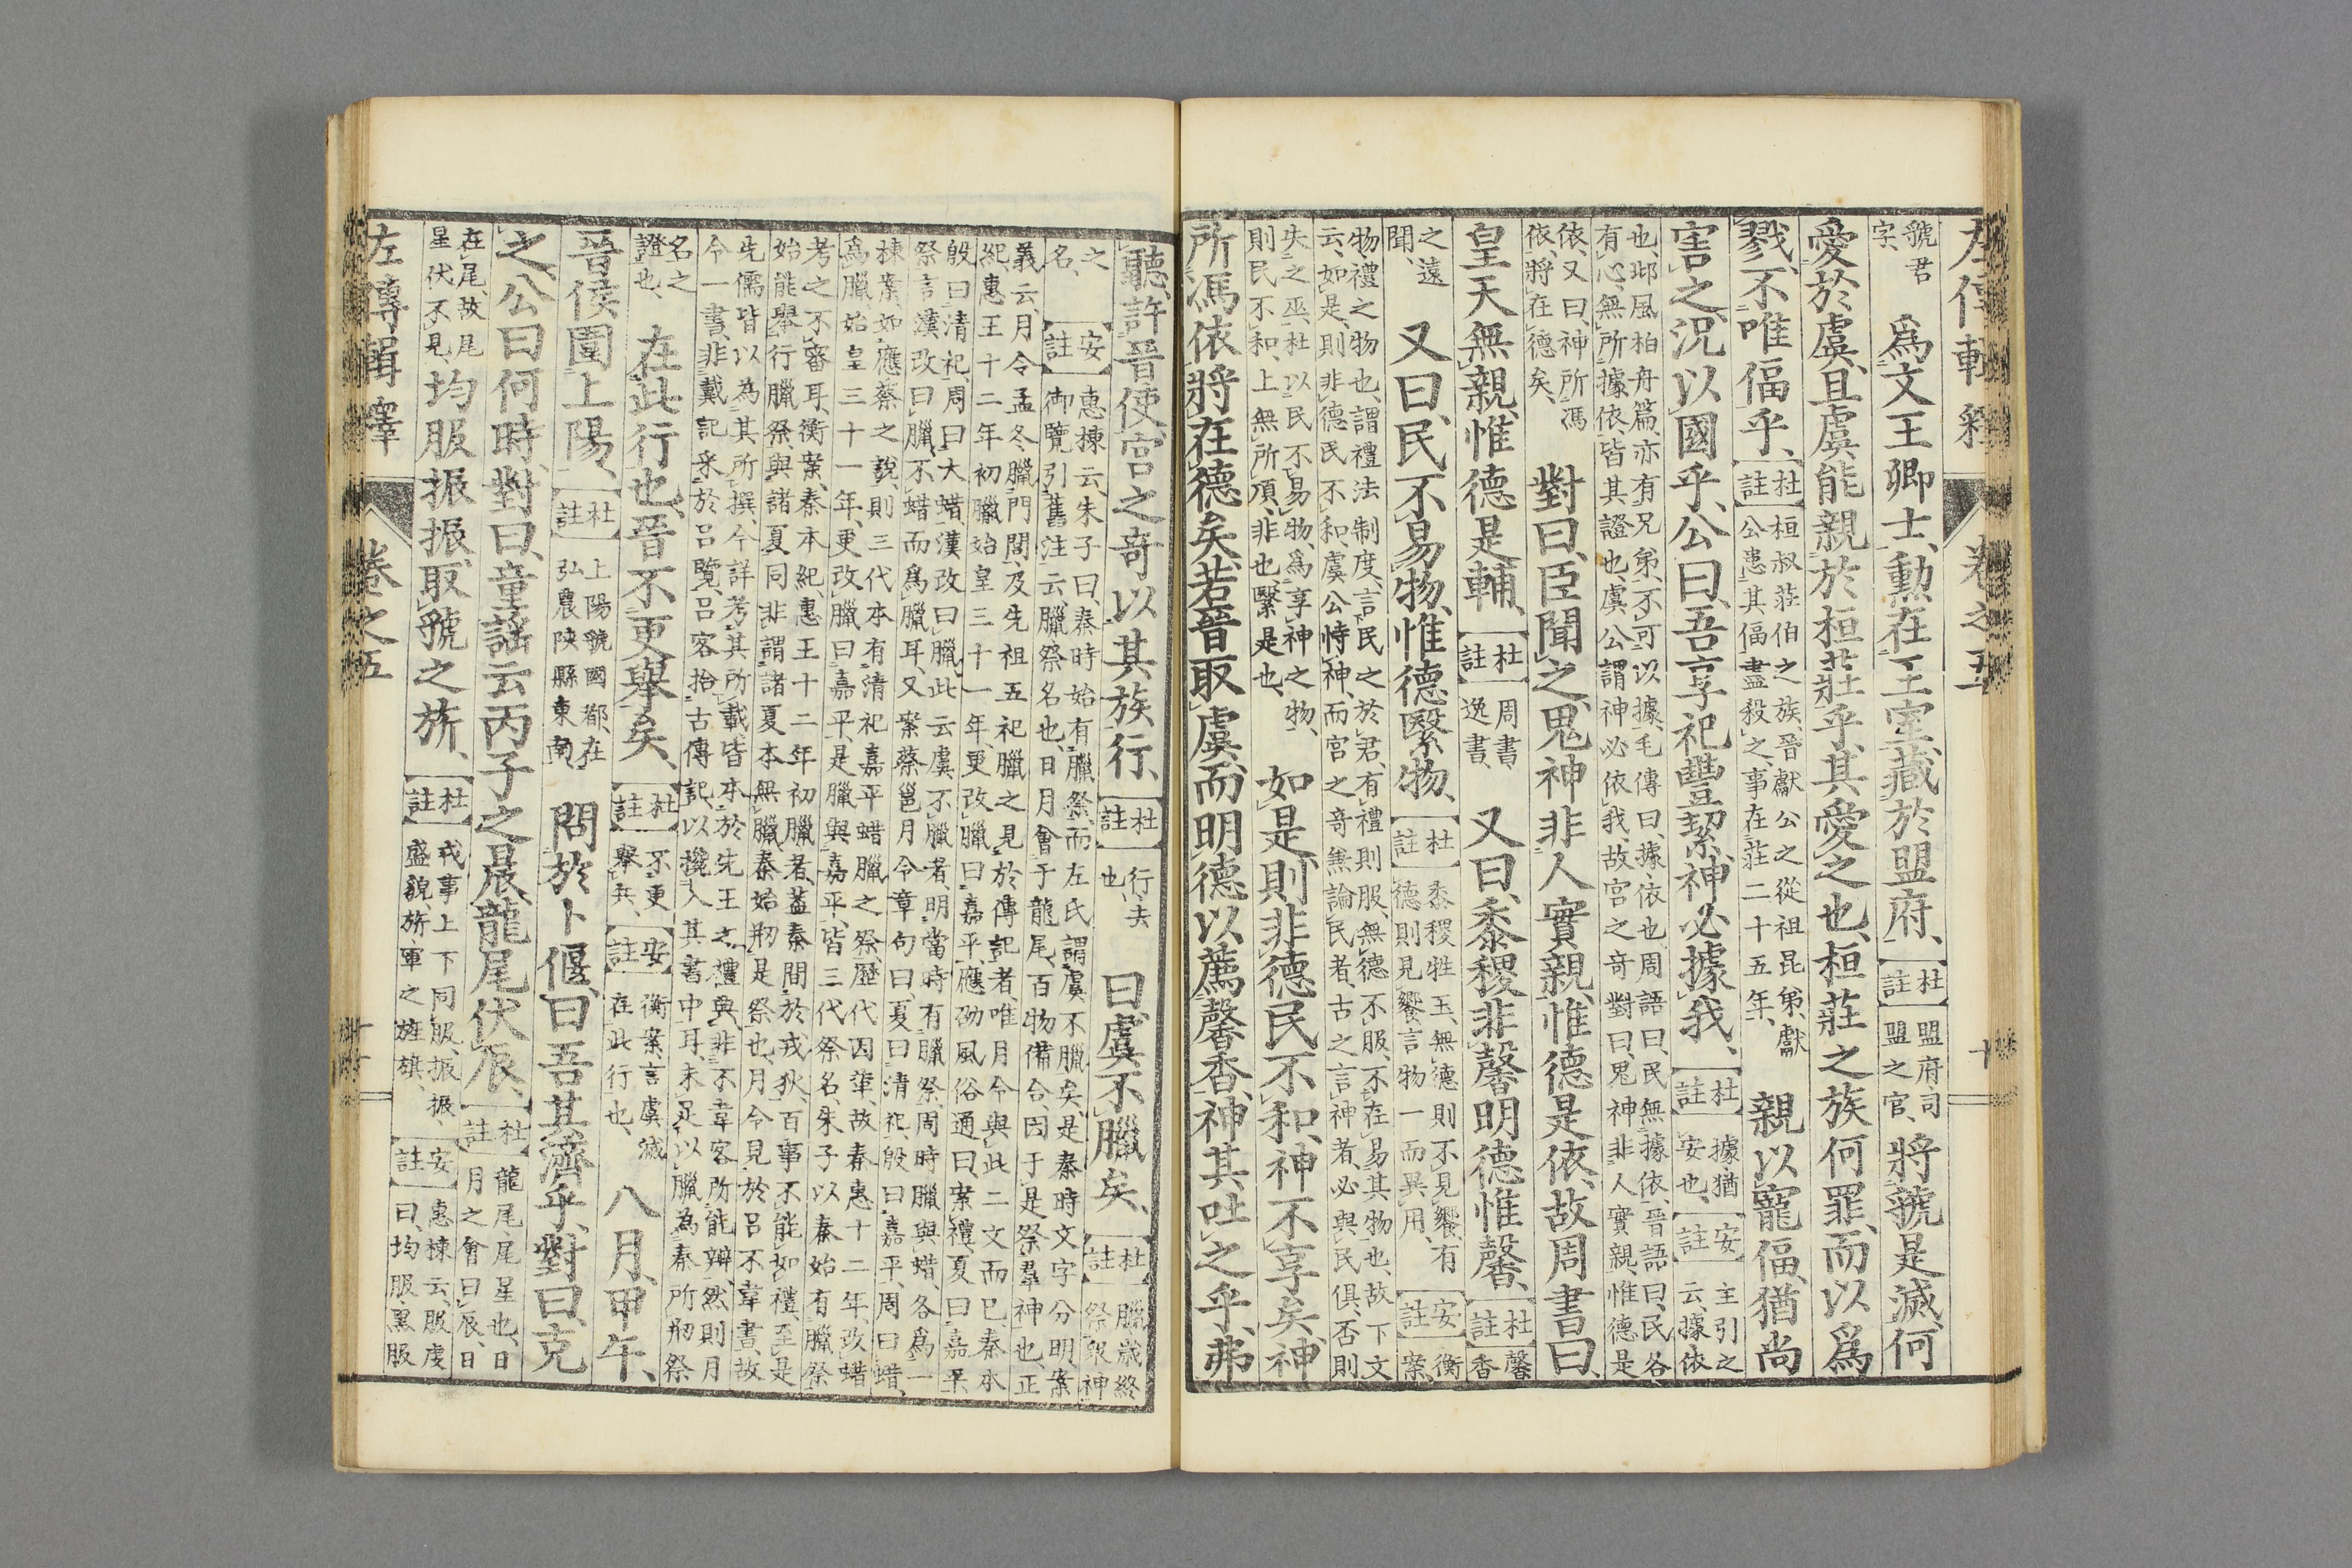 左傳輯釋 卷之五 十
虢君
字、
爲文王卿士、勳在王室、藏於盟府、
杜註
盟府、司
盟之官、
將虢是滅、何
愛於虞、且虞能親於桓莊乎、其愛之也、桓莊之族何罪、而以爲
戮、不唯偪乎、
杜註
桓叔莊伯之族、晉獻公之從祖昆弟、獻
公患其偪、盡殺之、事在莊二十五年、
親以寵偪、猶尚
害之、況以國乎、公曰、吾享祀豐絜、神必據我、
杜註
據、猶
安也、
安註
主引之
云、據依
也、邶風柏舟篇、亦有兄弟、不可以據、毛傳曰、據、依也、周語曰、民無據依、晉語曰、民各
有心、無所據依、皆其證也、虞公謂神必依我、故宮之奇對曰、鬼神非人實親、惟德是
依、又曰、神所馮
依、將在德矣、
對曰、臣聞之、鬼神非人實親、惟德是依、故周書曰、
皇天無親、惟德是輔、
杜註
周書、
逸書、
又曰、黍稷非馨、明德惟馨、
杜註
馨
香
之遠
聞、
又曰、民不易物、惟德繄物、
杜註
黍稷牲玉、無德則不見饗、有
德則見饗、言物一而異用、
安註
衡
案、
物、禮之物也、謂禮法制度、言民之於君、有禮則服、無德不服、不在易其物也、故下文
云、如是、則非德民不和、虞公恃神、而宮之奇無論民者、古之言神者、必與民俱、否則
失之巫、杜以民不易物、爲享神之物、
則民不和、上無所項、非也、繄是也、
如是、則非德民不和、神不享矣、神
所馮依、將在德矣、若晉取虞、而明德以薦馨香、神其吐之乎、弗
聽、許晉使、宮之奇以其族行、
杜註
行、去
也、
曰、虞不臘矣、
杜註
臘、歲終
祭衆神
之
名、
安註
惠棟云、朱子曰、秦時始有臘祭、而左氏謂虞不臘矣、是秦時文字分明、案
御覽引舊注云、臘祭名也、日月會于龍尾、百物備合、因于是祭羣神也、正
義云、月令孟冬、臘門閭、及先祖五祀、臘之見於傳記者、唯月令與此二文而已、秦本
紀、惠王十二年初臘、始皇三十一年、更改臘曰嘉平、應劭風俗通曰、案禮、夏曰嘉平、
殷曰清祀、周曰大蜡、漢改曰臘、此云虞不臘者、明當時有臘祭、周時臘與蜡各爲一
祭、言漢改曰臘、不蜡而爲臘耳、又案蔡邕月令章句曰、夏曰清祀、殷曰嘉平、周曰蜡、
棟案、如應蔡之說、則三代本有清祀嘉平蜡臘之祭、歷代因革、故秦惠十二年、改蜡
爲臘、始皇三十一年、更改臘曰嘉平、是臘與嘉平、皆三代祭名、朱子以秦始有臘祭
考之不審耳、衡案、秦本紀、惠王十二年初臘者、蓋秦間於戎狄、百事不能如禮、至是
始能舉行臘祭、與諸夏同、非謂諸夏本無臘、秦始刱是祭也、月令見於呂不韋書、故
先儒皆以為其所撰、今詳考其所載、皆本於先王之禮典、非不韋客所能辨、然則月
令一書、非戴記采於呂覽、呂客拾古傳記、以攙入其書中耳、未足以臘為秦所刱祭
名之
證也、
在此行也、晉不更舉矣、
杜註
不更
舉兵、
安註
衡案、言虞滅
在此行也、
八月、甲午、
晉侯圍上陽、
杜註
上陽、虢國都、在
弘農陝縣東南、
問於卜偃、曰吾其濟乎、對曰、克
之、公曰何時、對曰、童謠云、丙子之晨、龍尾伏辰、
杜註
龍尾、尾星也、日
月之會曰辰、日
在尾、故尾
星伏不見、
均服振振、取虢之旂、
杜註
戎事上下同服、振振、
盛貌、旂、軍之旌旗、
安註
惠棟云、服虔
曰、均服、黑服
左傳輯釋 卷之五